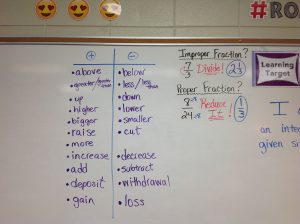 #RO
+ −
• above • below
• greater/greater than • less/less than
• up • down
• higher • lower
• bigger • smaller
• raise • cut
• more
• increase • decrease
• add • subtract
• deposit • withdrawal
• gain • loss
Improper Fraction?
7/3 Divide! 2 1/3
Proper Fraction?
8/24 ÷8 ÷8 Reduce It! 1/3
Learning Target
I
an inte
given si